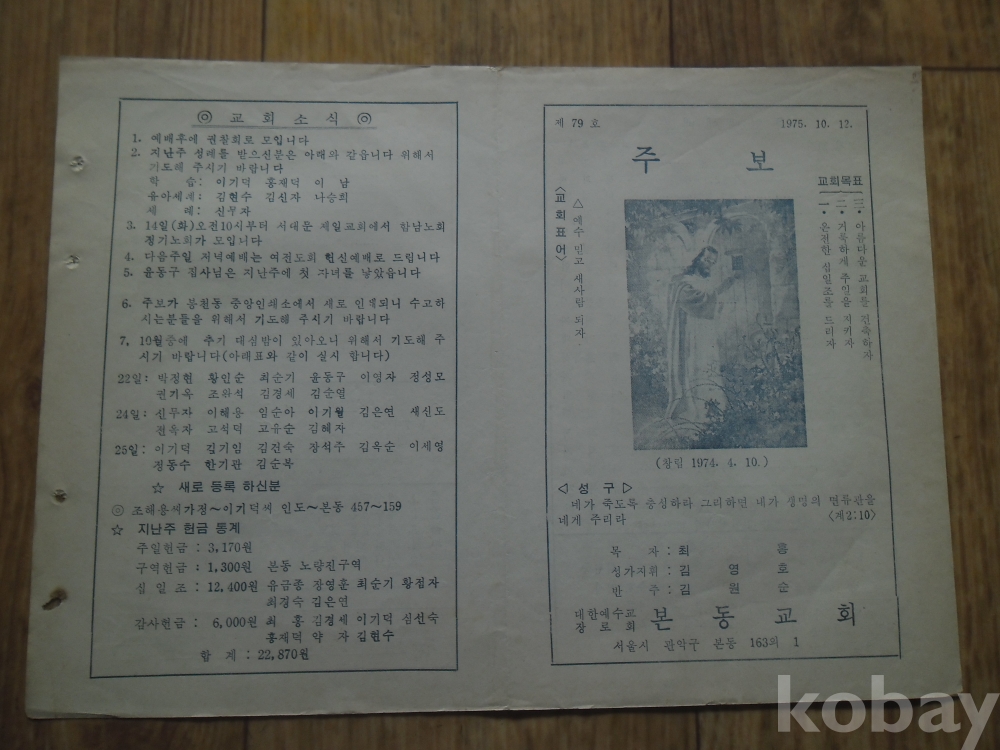 ◎ 교 회 소 식 ◎
1. 예배후에 권찰회로 모입니다
2. 지난주 성례를 받으신분은 아래와 같읍니다 위해서
기도해 주시기 바랍니다
학 습: 이기덕 홍재덕 이 남
유아세례: 김현수 김신자 나승희
세 례: 신무자
3. 14일(화)오전10시부터 서대문 제일교회에서 함남노회
정기노회가 모입니다
4. 다음주일 저녁예배는 여전도회 헌신예배로 드립니다
5. 윤동구 집사님은 지난주에 첫 자녀를 낳았읍니다
6. 주보가 봉천동 중앙인쇄소에서 새로 인쇄되니 수고하
시는분들을 위해서 기도해 주시기 바랍니다
7, 10월중에 추기 대심방이 있아오니 위해서 기도해 주
시기 바랍니다(아래표와 같이 실시 합니다)
22일: 박정현 황인순 최순기 윤동구 이영자 정성모
권기옥 조완석 김경세 김순열
24일: 신무자 이해용 임순아 이기월 김은연 새신도
전옥자 고석덕 고유순 김혜자
25일: 이기덕 김기임 김건숙 장석주 김옥순 이세영
정동수 한기관 김순복
☆ 새로 등록 하신분
◎ 조해용씨가정~이기덕씨 인도~본동 457~159
☆ 지난주 헌금 통계
주일헌금 : 3,170원
구역헌금 : 1,300원 본동 노량진구역
십 일 조 : 12,400원 유금종 장영훈 최순기 황점자
최경숙 김은연
감사헌금 : 6,000원 최 홍 김경세 이기덕 심선숙
홍재덕 약 자 김현수
합 계 : 22,870원
제 79 호 1975. 10. 12.
주 보
교회목표
一. 온전한 십일조를 드리자
二. 거룩하게 주일을 지키자
三. 아름다운 교회를 건축하자
<교회표어>
△ 예수 믿고 새사람 되자
(창립 1974. 4. 10.)
◁ 성 구 ▷
네가 죽도록 충성하라 그리하면 내가 생명의 면류관을
네게 주리라 <계2:10>
목 자 : 최 홍
성가지휘 : 김 영 호
반 주 : 김 원 순
대한예수교
장 로 회 본 동 교 회
서울시 관악구 본동 163의 1
kobay